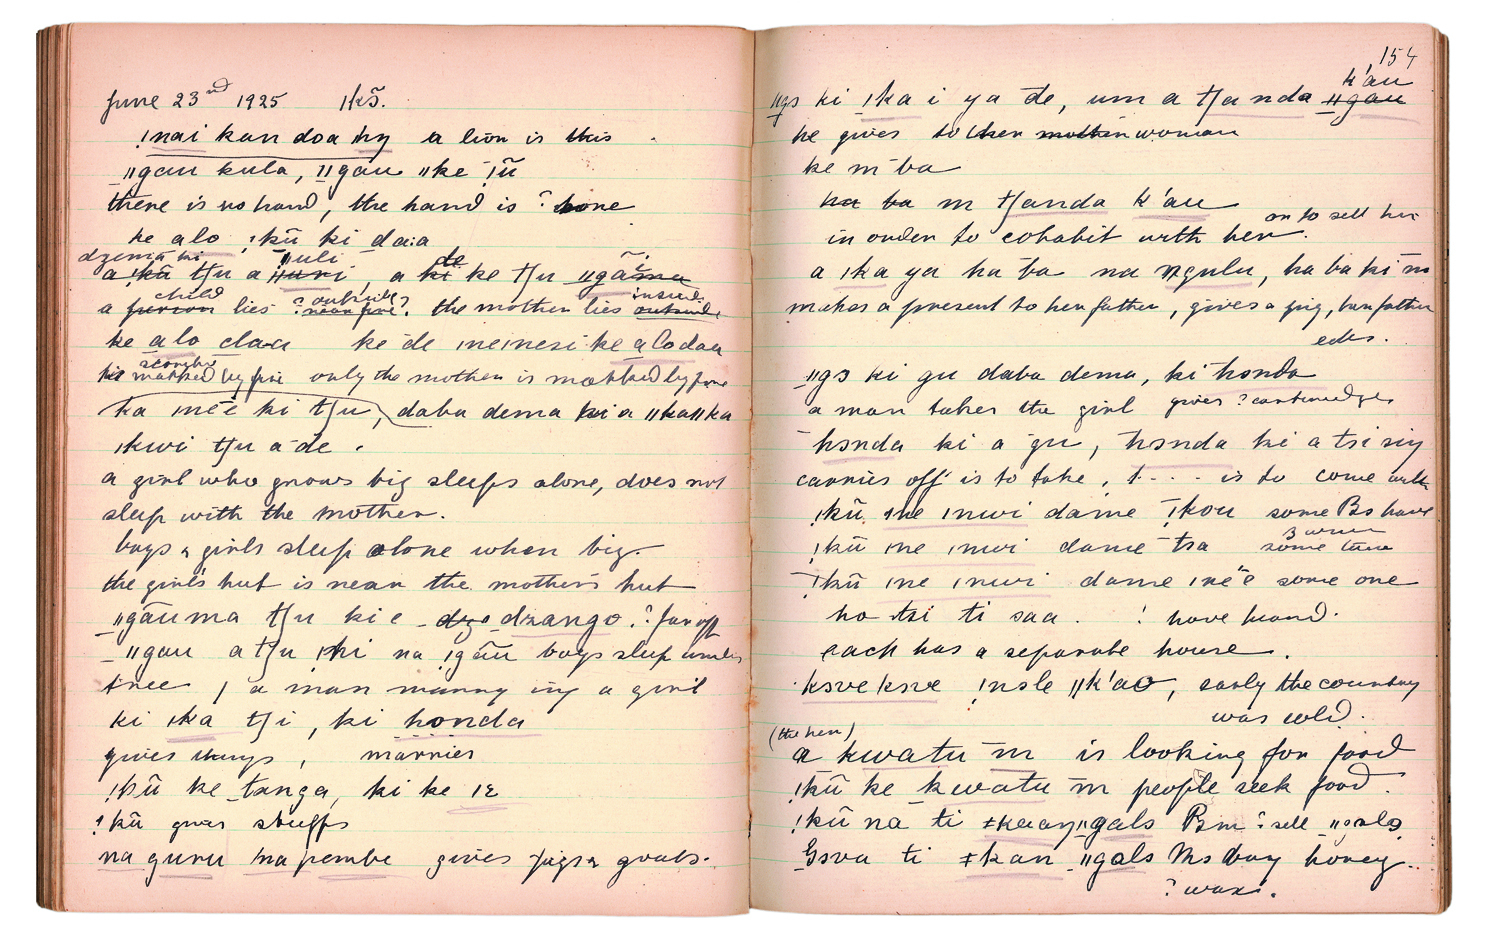 June 23nd 1925 ǀkɔ̃.
ǃnai kan doa hy a lion is this
ǁgau kula, ǁgau ǁke ǀũ
there is no hand, the hand is ? bone
ke alo ǃkũ ki da:a
dzema ki ǁuli de
a ǃkũ tʃu a ǁuri, a ki ke tʃu ǁgãũma
child ? outside? inside
a person lies ? near fire. the mother lies outside
ke alo daa ke de ǀneǀnesi ke alo daa
scorched
is marked by fire only the mother is marked by fire
ka ǀnéé ki tʃu, daba dema ki a ǁkaǁka
ǀkwi tʃu a de.
a girl who grows big sleeps alone, does not
sleep with the mother.
boys & girls sleep alone when big.
the girl's hut is near the mother's hut
ǁgãuma tʃu ki e dzo dzango. ? far off
ǁgau a tʃu ki na ǀgãũ boys sleep under
tree, a man marrying a girl
ki ǀka tʃi, ki honda
gives things, marries
ǃkũ ke tanga, ki ke ǀɛ
ǃkũ gives stuffs
na guru na pembe gives pigs & goats.
154
k'au
ǁgɔ ki ǀka i ya de, um a tʃanda ǁgau
he gives to her mother woman
ke m ba
ha ba m tʃanda k'au
or to sell her
in order to cohabit with her.
a ǀka ya ha ba na ŋgulu, ha ba ki m
makes a present to her father, gives a pig, her father
eats.
ǁgɔ ki gu daba dema, ki hɔnda
a man takes the girl gives ?
hɔnda ki a gu, hɔnda ki a tsi siŋ
carries off is to take, t . . . . is to come with
ǃkũ ǀne ǀnwi dame ǃkou some Bs have
ǃkũ ǀne ǀnwi dame tsa some two
ǃkũ ǀne ǀnwi dame ǀne'e some one
ho tsi ti saa. ! have heard.
each has a separate house.
ksve ksve ǃnɔle ǁk'ao, early the country
was cold.
(the hen)
a kwatu m is looking for food
ǃkũ ke kwatu m people seek food.
ǃkũ na ti ǂkaaŋ ǁgals Bm ? sell ǁgalɔ
Gova ti ǂkan ǁgals Ms buy honey.
? wax.